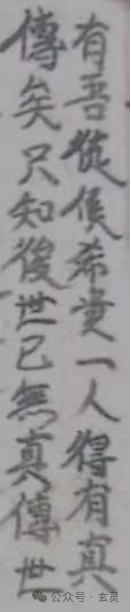 有吾從侯希貴一人得有真
傳矣只知後世已無真傳世
公众号·玄灵